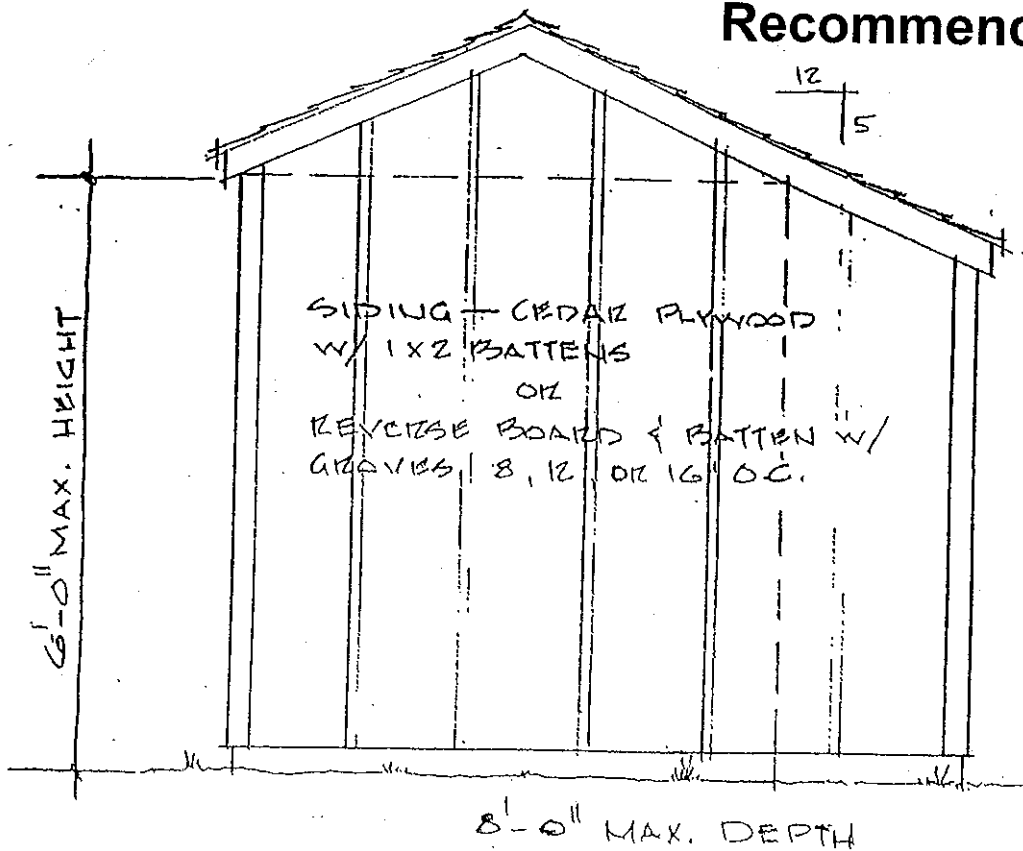 Recommend
12
5
SIDING - CEDAR PLYWOOD
W/ 1X2 BATTENS
OR
REVERSE BOARD & BATTEN W/
GROVES, 8, 12 OR 16 O.C.
6'-0" MAX. HEIGHT
8'-0" MAX. DEPTH